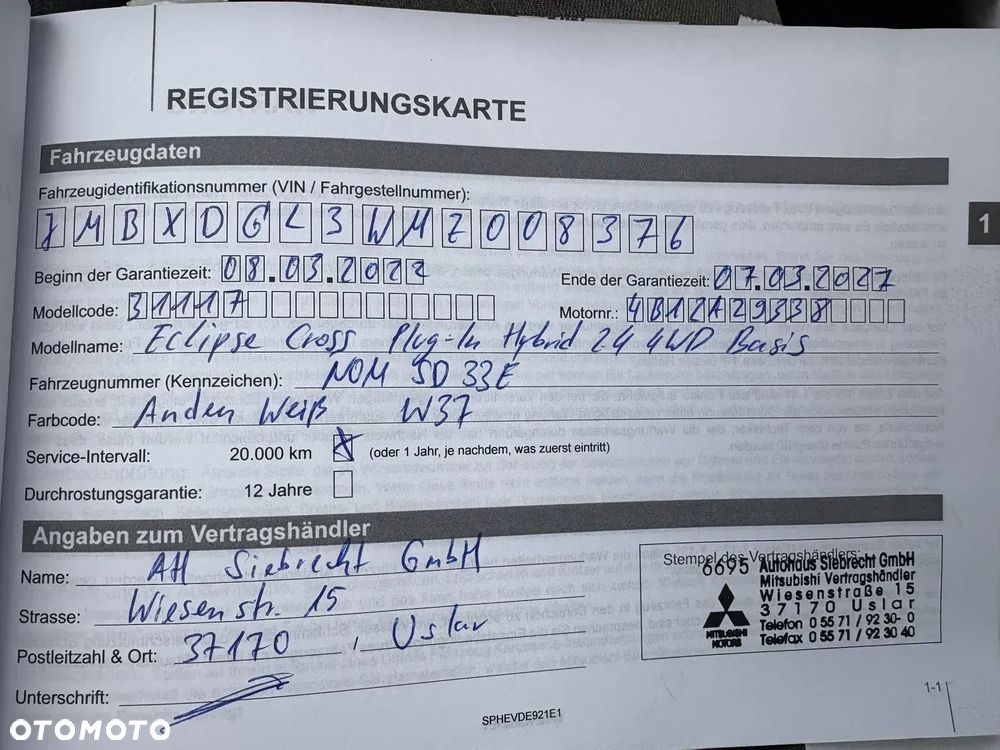 REGISTRIERUNGSKARTE
Fahrzeugdaten
Fahrzeugidentifikationsnummer (VIN / Fahrgestellnummer):
JMBXDGL3WMZ008376
1
Beginn der Garantiezeit: 08.03.2022 Ende der Garantiezeit: 07.03.2027
Modellcode: 31117 Motornr.: 4B12A29338
Modellname: Eclipse Cross Plug-In Hybrid 24 4WD Basis
Fahrzeugnummer (Kennzeichen): NOM SD 33E
Farbcode: Anden Weiß W37
Service-Intervall: 20.000 km (oder 1 Jahr, je nachdem, was zuerst eintritt)
Durchrostungsgarantie: 12 Jahre
Angaben zum Vertragshändler
Name: AH Siebrecht GmbH
Strasse: Wiesenstr. 15
Postleitzahl & Ort: 37170, Uslar
Unterschrift:
Stempel des Vertragshändlers:
6695 Autohaus Siebrecht GmbH
Mitsubishi Vertragshändler
Wiesenstraße 15
37170 Uslar
Telefon 0 55 71 / 92 30- 0
Telefax 0 55 71 / 92 30 40
MITSUBISHI
MOTORS
1-1
SPHEVDE921E1
OTOMOTO